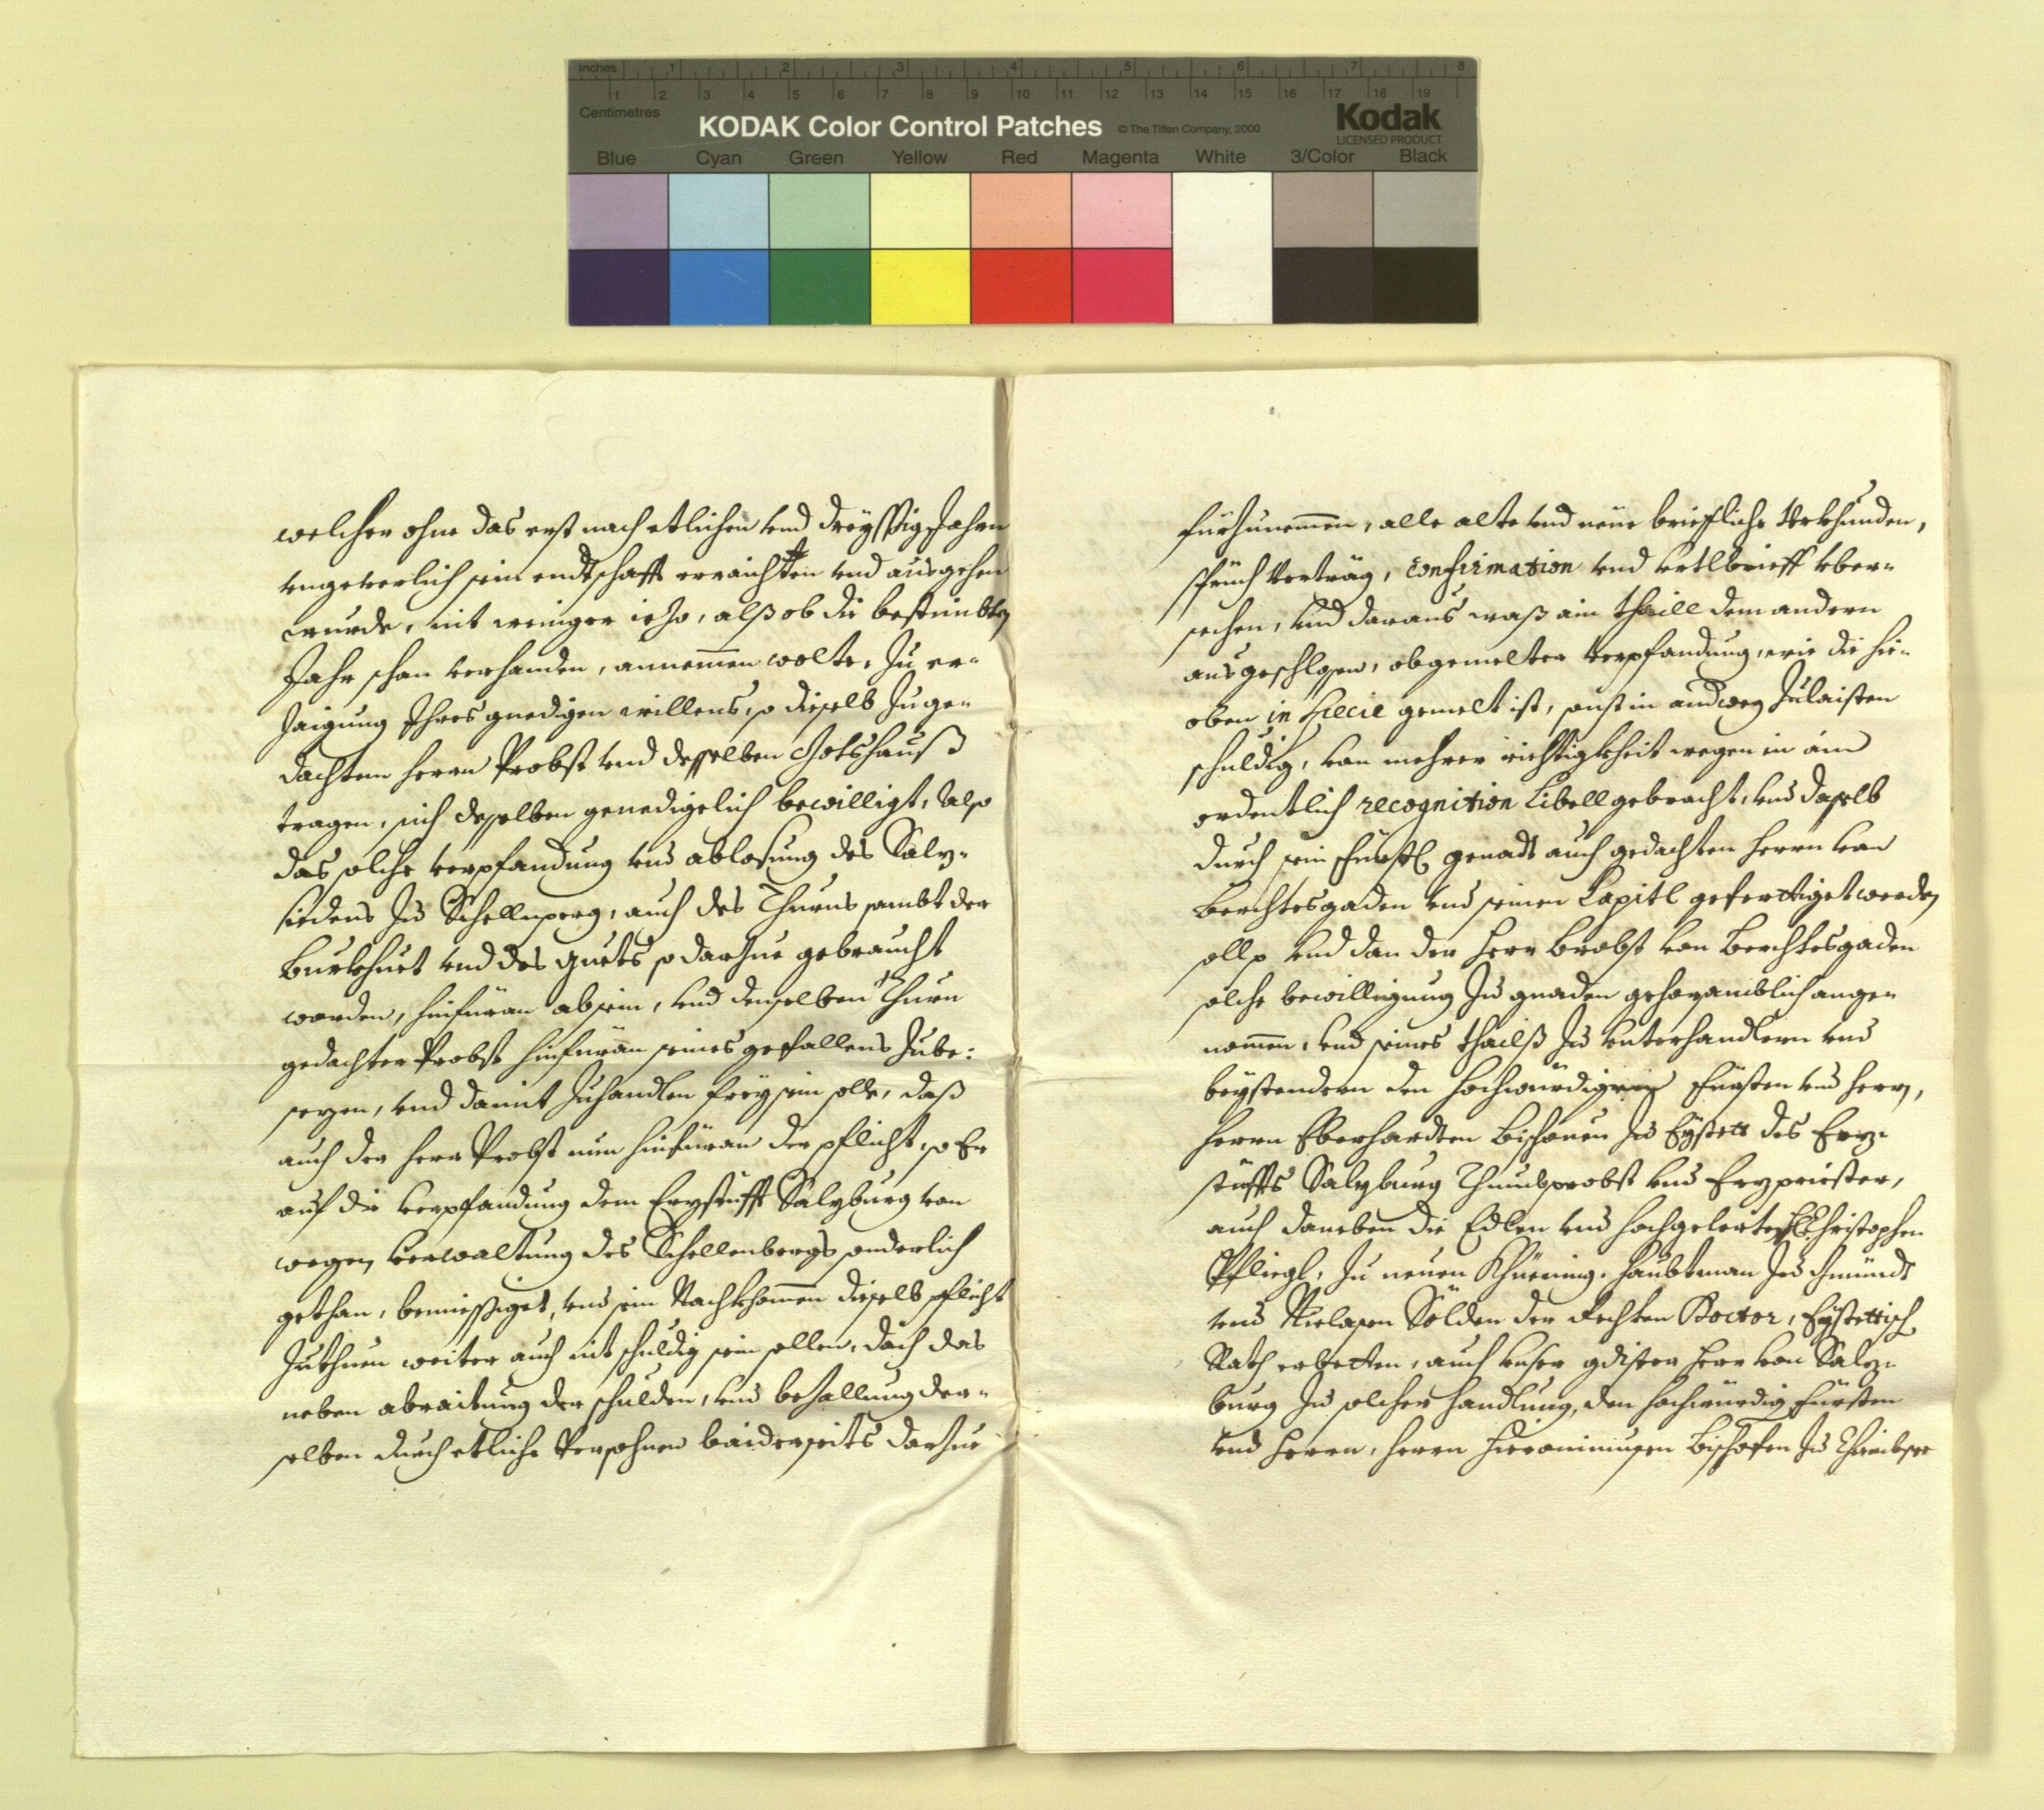 Inches 1 2 3 4 5 6 7 8
1 2 3 4 5 6 7 8 9 10 11 12 13 14 15 16 17 18 19
Centimetres
KODAK Color Control Patches © The Tiffen Company, 2000 Kodak
LICENSED PRODUCT
Blue Cyan Green Yellow Red Magenta White 3/Color Black
welcher ohne das erst nach etlichen vnd dreyssig Jahrn
vngeverlich sein endtschafft erraichten vnd ausgehen
wurde, nit weniger iezo, alß ob die bestimbten
Jahr schon verhanden, annemmen wolte, Zu er-
zaigung Ihres gnedigen willens, so dieselb Zu ge-
dachtem herrn Probst vnd desselben Gotshauß
tragen, sich desselben genedigelich bewilligt, Also
das solche verpfandung vnd ablosung des Salz-
siedens Zu Schellnperg, auch des Thurns sambt der
Burkhuet vnd des guets so darzue gebraucht
worden, hinfüran absein, vnd denselben Thurn
gedachter Probst hinfüran seines gefallens Zube:
sezen, vnd damit Zuhandlen frey sein solle, daß
auch der herr Probst nun hinfüran der pflicht, so Er
auf die verpfandung dem Erzstüfft Salzburg von
wegen verwaltung des Schellenbergs sonderlich
gethan, bemiessiget, vnd sein Nachkhommen dieselb pflicht
Zuthuen weiter auch nit schuldig sein sollen, doch das
neben abraitung der schulden, vnd bezallung der-
selben durch etliche Persohnen baiderseits darzue
fürzunemmen, alle alte vnd neue briefliche Vrkhunden,
spruch Verträg, confirmation vnd vrtlbrieff vber-
sechen, vnd daraus waß ain thaill dem andern
ausgeschlossen, obgemelter verpfandung, wie die hie-
oben in specie gemelt ist, sonst in andweg Zulaisten
schuldig, von mehrer richtigkheit wegen in ain
ordentlich recognition Libell gebracht, vnd dasselb
durch sein fürstl genadt auch gedachten herrn von
Berchtesgaden vnd seinen Capitl gefertiget werden
solle vnd dan der herr Brobst von Berchtesgaden
solche bewilligung Zu gnaden gehorsamblich ange-
nommen, vnd seines thailß Zu vnterhandlern vnd
beystendern den hochwürdigen Fürsten vnd herrn,
herrn Eberhardten Bischouen Zu Eystett des Erz-
stüffts Salzburg Thumbprobst vnd Erzpriester,
auch daneben die Edlen vnd hochgelerten Christophen
Pfliegl, Zu neuen Khüening, haubtman Zu Gmündt
vnd Niclasen Sölden der Rechten Doctor, Eystettisch
Rath erbetten, auch vnser gdister herr von Salz-
burg Zu solcher handlung, den hochwürdig Fürsten
vnd herrn, herrn Hieronimusen Bischofen Zu Khiembsee